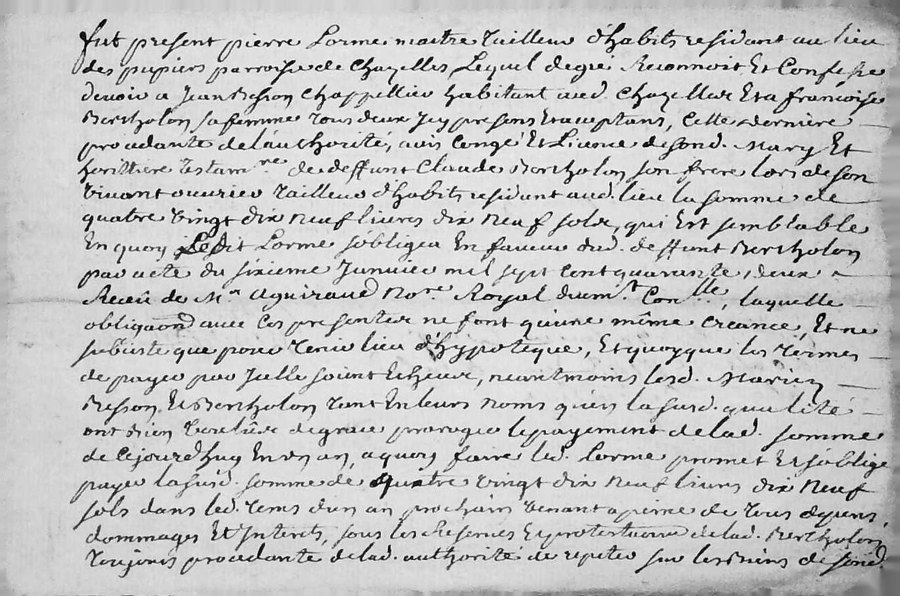 fut present pierre Lorme maitre Tailleur d'habits residant au lieu
des pupiers parroisse de Chazelles Lequel de gré Reconnoit Et Confesse
devoir a Jean Besson Chappellier habitant aud. Chazelles Et a francoise
Bertholon sa femme Tous deux Icy presens Et aceptans, Cette derniere
procedante de l'authorité, avis Congé Et Licence de sond. Mary Et
heritiere Testam.re de deffunt Claude Bertholon son frere lors de son
vivant ouvrier Tailleur d'habits residant aud. lieu la somme de
quatre vingt dix neuf livres dix neuf sols, qui Est semblable
En quoy Ledit Lorme s'obligea En faveur dud. deffunt Bertholon
par acte du sixieme Janvier mil sept cent quarante deux
Receu de M.e aguiraud No.re Royal laquelle
obligaõn avec Ces presentes ne font qu'une même creance, Et ne
subsiste que pour Tenir lieu d'hypoteque, Et quoyque les Termes
de payer par Icelle soient Echeus, neantmoins lesd. Mariez
Besson Et Bertholon Tant En leurs noms qu'en la susd. qualité
ont bien voulu de grace proroger le payement de lad. somme
de Cejourd'huy En un an, a quoy faire led. Lorme promet Et s'oblige
payer la susd. somme de quatre vingt dix neuf livres dix neuf
sols dans led. Tems d'un an prochain venant a peine de Tous depens,
dommages Et Interets, sous les Reserves Et protestations de lad. Bertholon
Toujours procedante de lad. authorité de repeter sur les biens de sond.